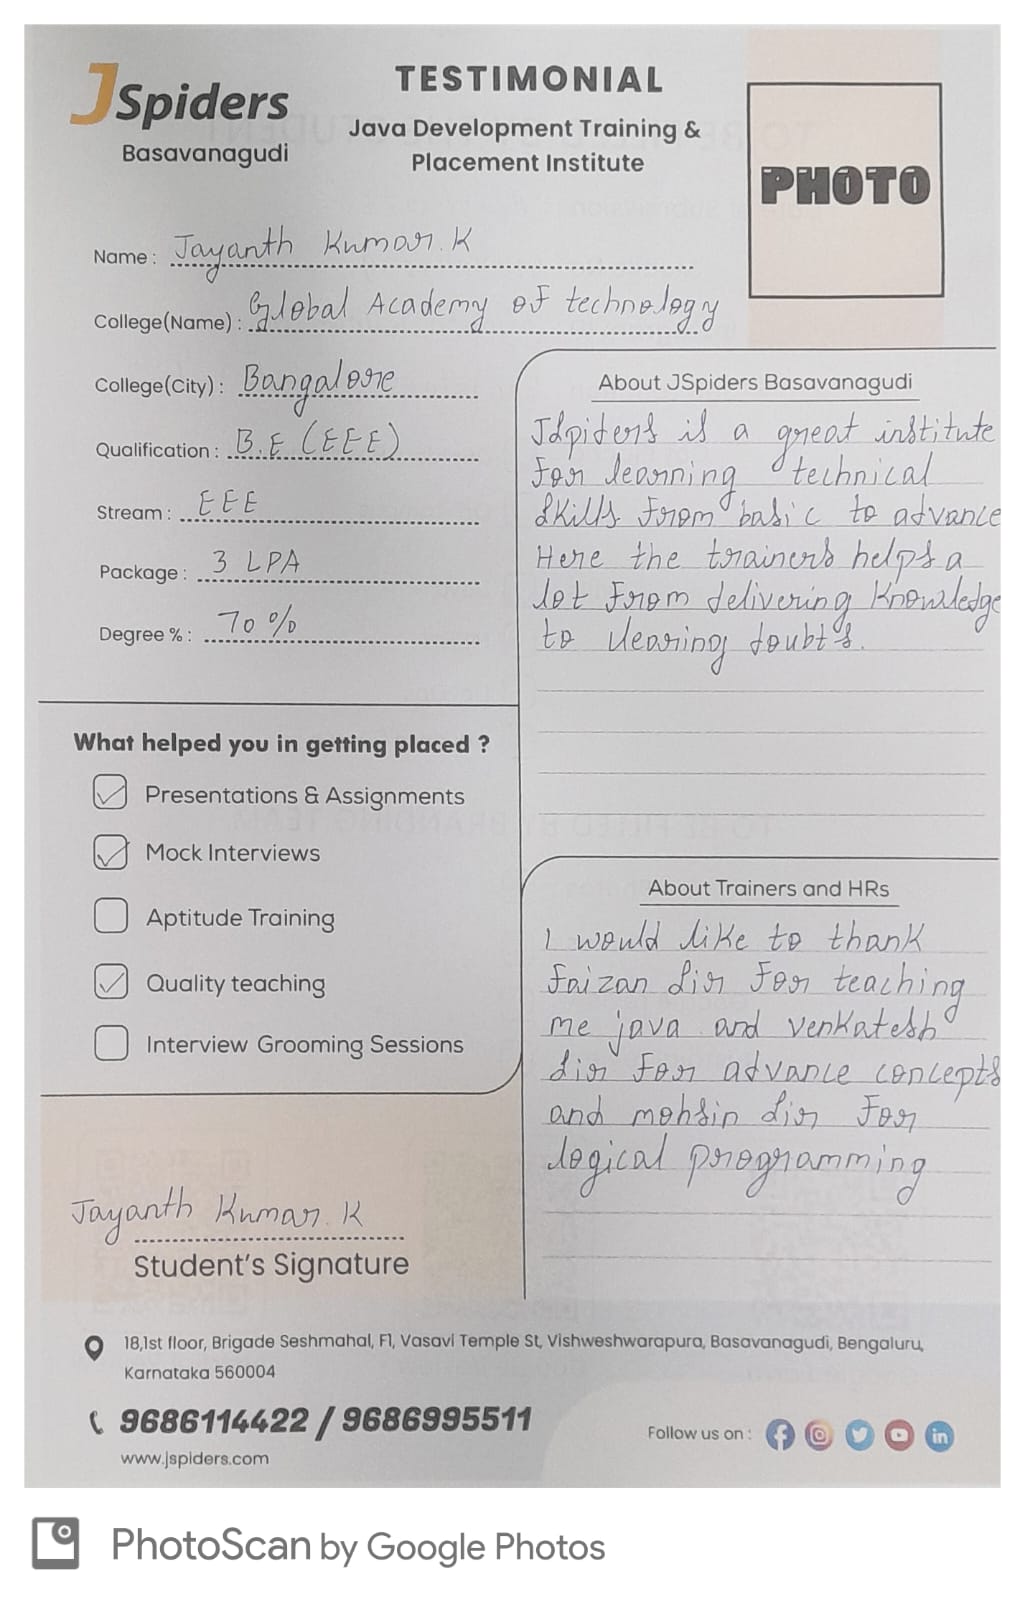 JSpiders
Basavanagudi
TESTIMONIAL
Java Development Training &
Placement Institute
PHOTO
Name : Jayanth Kumar. K
College(Name) : Global Academy of technology
College(City) : Bangalore
Qualification : B.E (EEE)
Stream : EEE
Package : 3 LPA
Degree % : 70 %
About JSpiders Basavanagudi
Jspiders is a great institute
For learning technical
skills From basic to advance
Here the trainers helps a
lot From delivering Knowledge
to clearing doubts.
What helped you in getting placed ?
Presentations & Assignments
Mock Interviews
Aptitude Training
Quality teaching
Interview Grooming Sessions
About Trainers and HRs
I would like to thank
Faizan sir For teaching
me java and venkatesh
sir For advance concepts
and mohsin sir For
logical programming
Jayanth Kumar. K
Student's Signature
18,1st floor, Brigade Seshmahal, F1, Vasavi Temple St, Vishweshwarapura, Basavanagudi, Bengaluru,
Karnataka 560004
9686114422 / 9686995511
www.jspiders.com
Follow us on :
PhotoScan by Google Photos